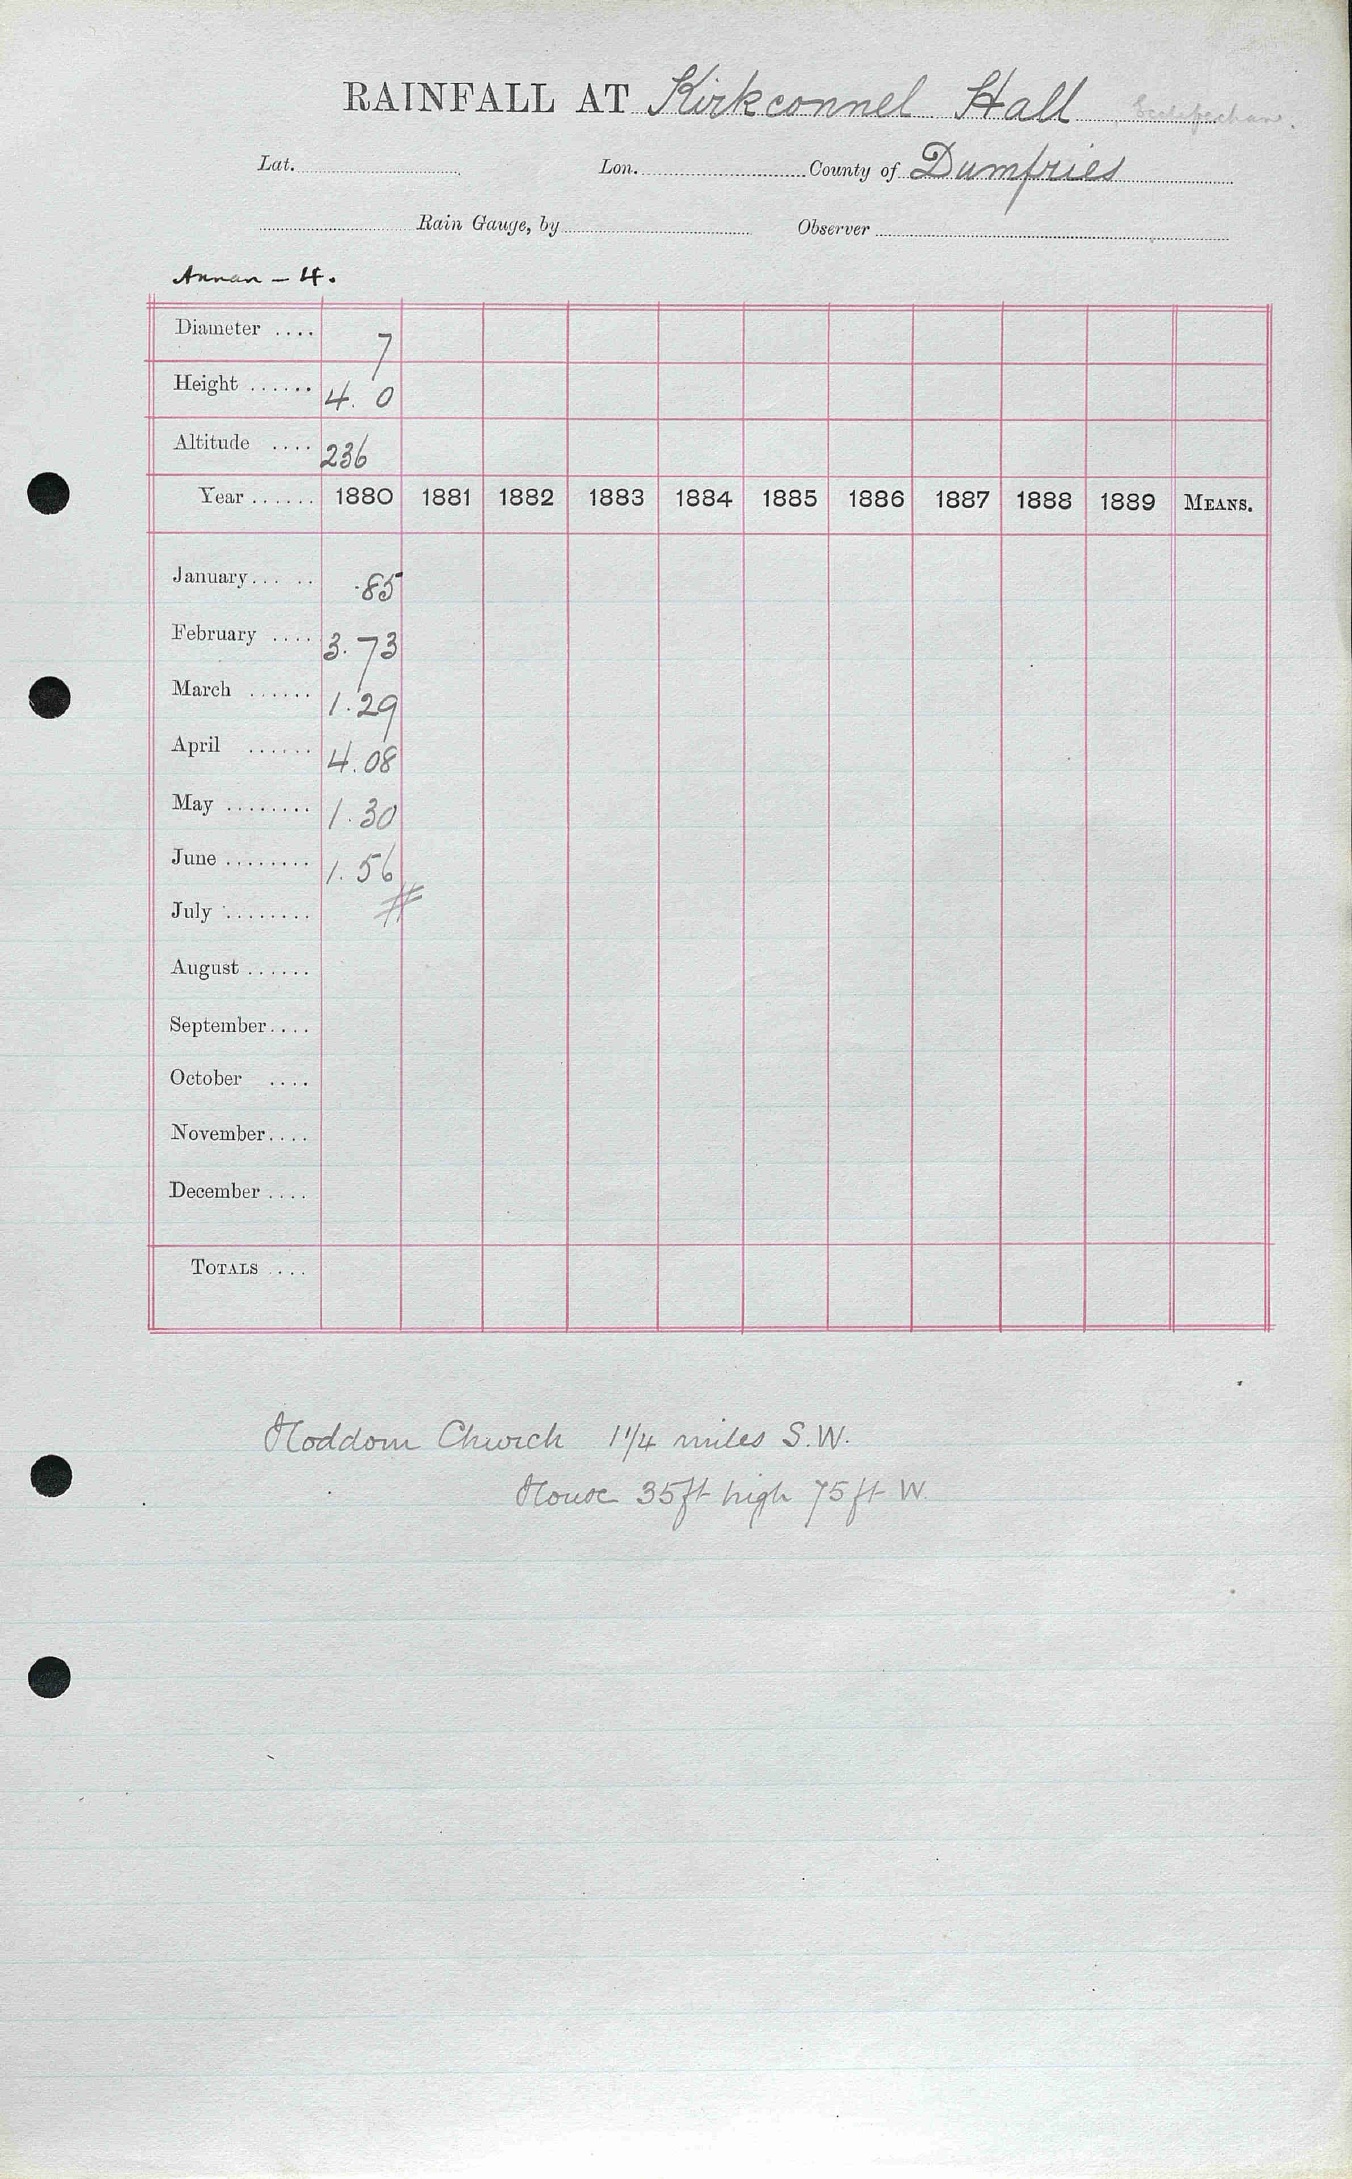 RAINFALL AT Kirkconnel Hall, Ecclefechan.
Lat. Lon. County of Dumfries
Rain Gauge, by Observer
Annan - 4.
Diameter .... 7
Height ...... 4. 0
Altitude .... 236
Year ...... 1880 1881 1882 1883 1884 1885 1886 1887 1888 1889 MEANS.
January ... .. .85
February .... 3.73
March ...... 1.29
April ...... 4.08
May ........ 1.30
June ........ 1.56
July ........ #
August ......
September ....
October ....
November ....
December ....
TOTALS ....
Hoddom Church 1 1/4 miles S.W.
House 35ft high 75ft W.